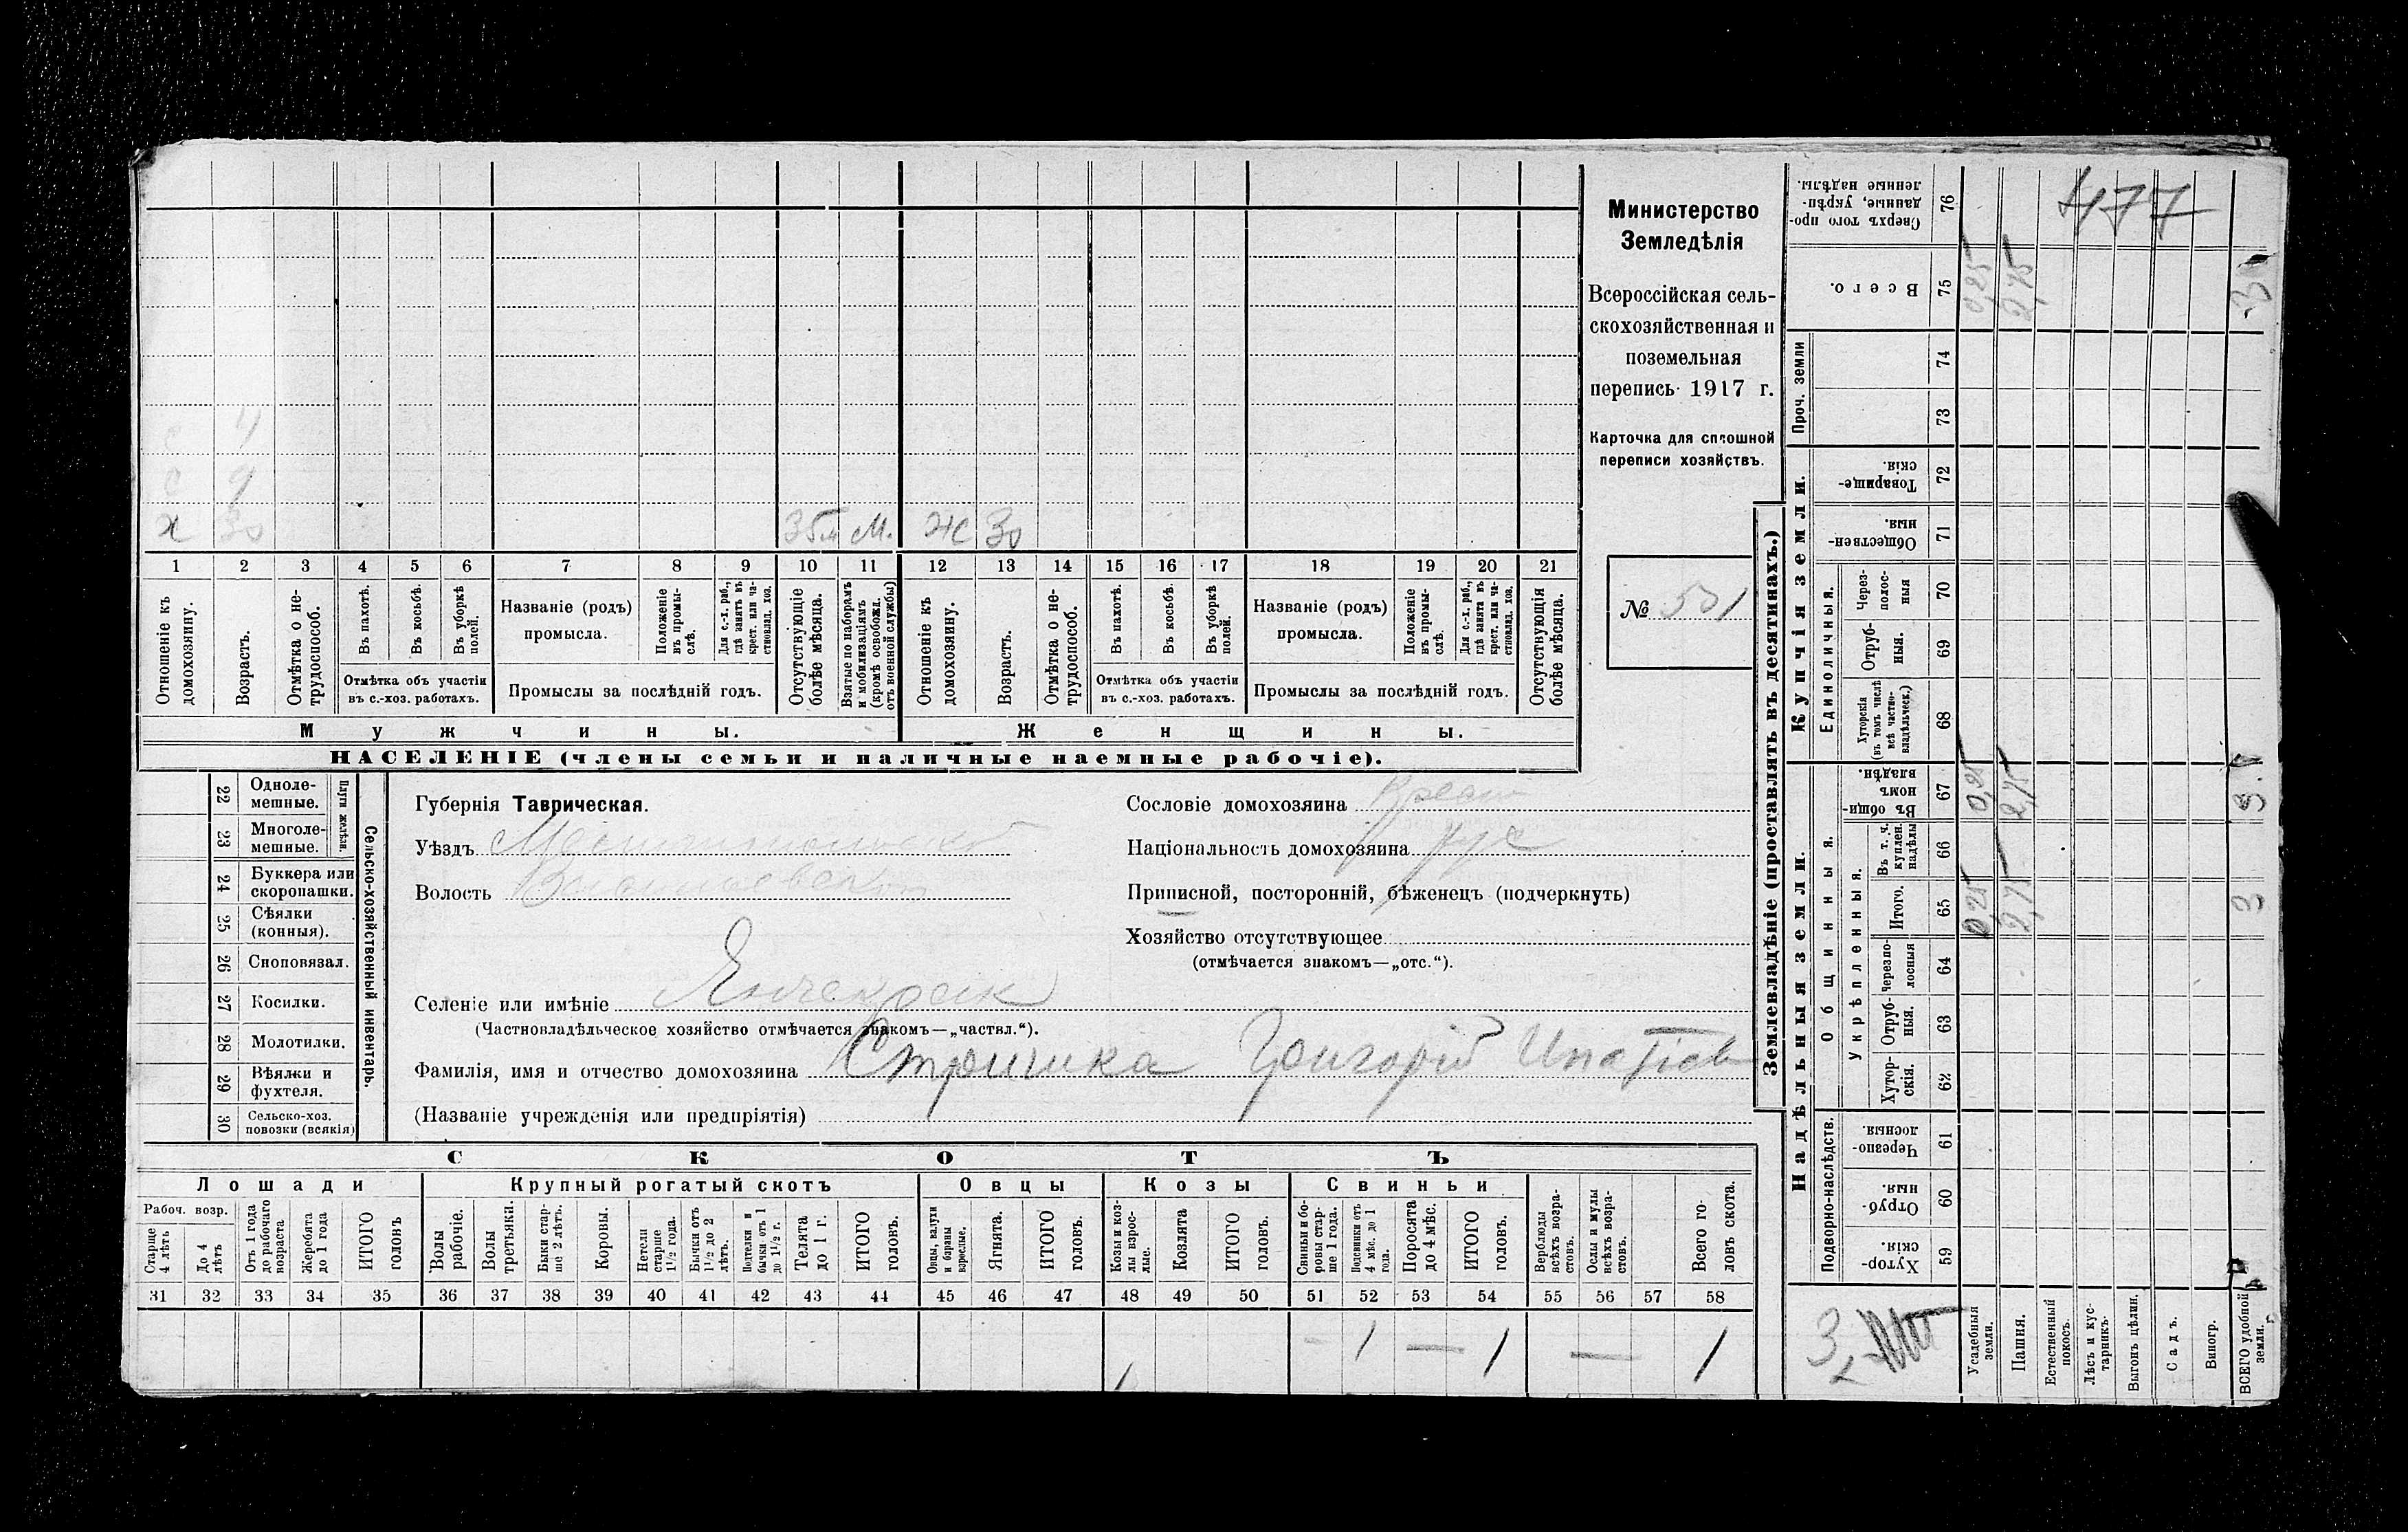 477
Министерство
Земледѣлія
Всероссійская сель-
скохозяйственная и
поземельная
перепись 1917 г.
Карточка для сплошной
переписи хозяйствъ.
№ 531
с 4
с 9
х 30 35 м М. Же 30
1 2 3 4 5 6 7 8 9 10 11 12 13 14 15 16 17 18 19 20 21
Отношеніе къ домохозяину.
Возрастъ.
Отмѣтка о не-трудоспособ.
Въ пахотѣ.
Въ косьбѣ.
Въ уборкѣ полей.
Отмѣтка объ участіи
въ с.-хоз. работахъ.
Названіе (родъ)
промысла.
Положеніе въ промы-слѣ.
Для с.-х. раб., гдѣ занятъ въ крест. или ча-стновлад. хоз.
Промыслы за послѣдній годъ.
Отсутствующіе болѣе мѣсяца.
Взятые по наборамъ и мобилизаціямъ (кромѣ освобожд. отъ военной службы)
Отношеніе къ домохозяину.
Возрастъ.
Отмѣтка о не-трудоспособ.
Въ пахотѣ.
Въ косьбѣ.
Въ уборкѣ полей.
Отмѣтка объ участіи
въ с.-хоз. работахъ.
Названіе (родъ)
промысла.
Положеніе въ промы-слѣ.
Для с.-х. раб., гдѣ занята въ крест. или ча-стновлад. хоз.
Промыслы за послѣдній годъ.
Отсутствующія болѣе мѣсяца.
Мужчины.
Женщины.
НАСЕЛЕНІЕ (члены семьи и наличные наемные рабочіе).
Сельско-хозяйственный инвентарь.
Плуги желѣзн.
22 Одноле-мешные.
23 Многоле-мешные.
24 Буккера или скоропашки.
25 Сѣялки (конныя).
26 Сноповязал.
27 Косилки.
28 Молотилки.
29 Вѣялки и фухтеля.
30 Сельско-хоз. повозки (всякія)
Губернія Таврическая.
Уѣздъ Мелитопольскій
Волость Васильевская
Селеніе или имѣніе Янчекрак
(Частновладѣльческое хозяйство отмѣчается знакомъ—„частвл.“).
Фамилія, имя и отчество домохозяина Стрижка Григорій Ипатіев
(Названіе учрежденія или предпріятія)
Сословіе домохозяина Крест
Національность домохозяина рус
Приписной, посторонній, бѣженецъ (подчеркнуть)
Хозяйство отсутствующее
(отмѣчается знакомъ—„отс.“).
СКОТЪ
Лошади
Крупный рогатый скотъ
Овцы
Козы
Свиньи
Рабоч. возр.
Старше 4 лѣтъ
До 4 лѣтъ
Отъ 1 года до рабочаго возраста
Жеребята до 1 года
ИТОГО головъ
Волы рабочіе.
Волы третьяки.
Быки стар-ше 2 лѣтъ.
Коровы.
Нетели старше 1½ года.
Бычки отъ 1½ до 2 лѣтъ.
Подтелки и бычки отъ 1 до 1½ г.
Телята до 1 г.
ИТОГО головъ.
Овцы, валухи и бараны взрослые.
Ягнята.
ИТОГО головъ.
Козы и коз-лы взрос-лые.
Козлята
ИТОГО головъ.
Свиньи и бо-ровы стар-ше 1 года.
Подсвинки отъ 4 мѣс. до 1 года.
Поросята до 4 мѣс.
ИТОГО головъ.
Верблюды всѣхъ возра-стовъ.
Ослы и мулы всѣхъ возра-стовъ.
Всего го-ловъ скота.
31 32 33 34 35 36 37 38 39 40 41 42 43 44 45 46 47 48 49 50 51 52 53 54 55 56 57 58
— 1 — 1 — 1
Землевладѣніе (проставлять въ десятинахъ.)
Надѣльныя земли.
Купчія земли.
Проч. земли
Подворно-наслѣдств.
Общинныя.
Укрѣпленныя.
Единоличныя.
Хутор-скія. 59
Отруб-ныя. 60
Черезпо-лосныя. 61
Хутор-скія. 62
Отруб-ныя. 63
Черезпо-лосныя 64
Итого. 65 0,25 2,75 3
Въ т. ч. куплен. надѣлы 66
Въ общин-номъ владѣн. 67 0,25 2,75 3
Хуторскія (въ томъ числѣ всѣ частно-владѣльческ.) 68
Отруб-ныя. 69
Через-полос-ныя 70
Обществен-ныя. 71
Товарище-скія. 72
73
74
Всего. 75 0,25 2,75 3
Сверхъ того про-данные, укрѣп-ленные надѣлы. 76
Усадебныя земли.
Пашня.
Естественный покосъ.
Лѣсъ и кус-тарникъ.
Выгонъ цѣлин.
Садъ.
Виногр.
ВСЕГО удобной земли.